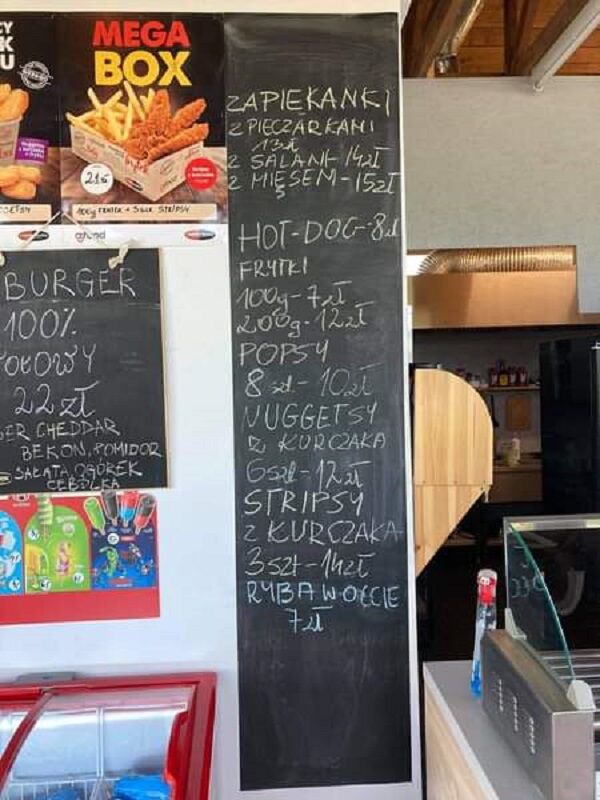 MEGA
BOX
21zł
100g FRYTEK + 3szt. STRIPSY
BURGER
100%
22 zł
CHEDDAR
BEKON, POMIDOR
SAŁATA, OGÓREK
CEBULKA
ZAPIEKANKI
Z PIECZARKAMI
13zł
Z SALAMI-14zł
Z MIĘSEM-15zł
HOT-DOG-8zł
FRYTKI
100g-7zł
200g-12zł
POPSY
8szt-10zł
NUGGETSY
Z KURCZAKA
6szt-12zł
STRIPSY
Z KURCZAKA
3szt-14zł
RYBA W OCCIE
7zł